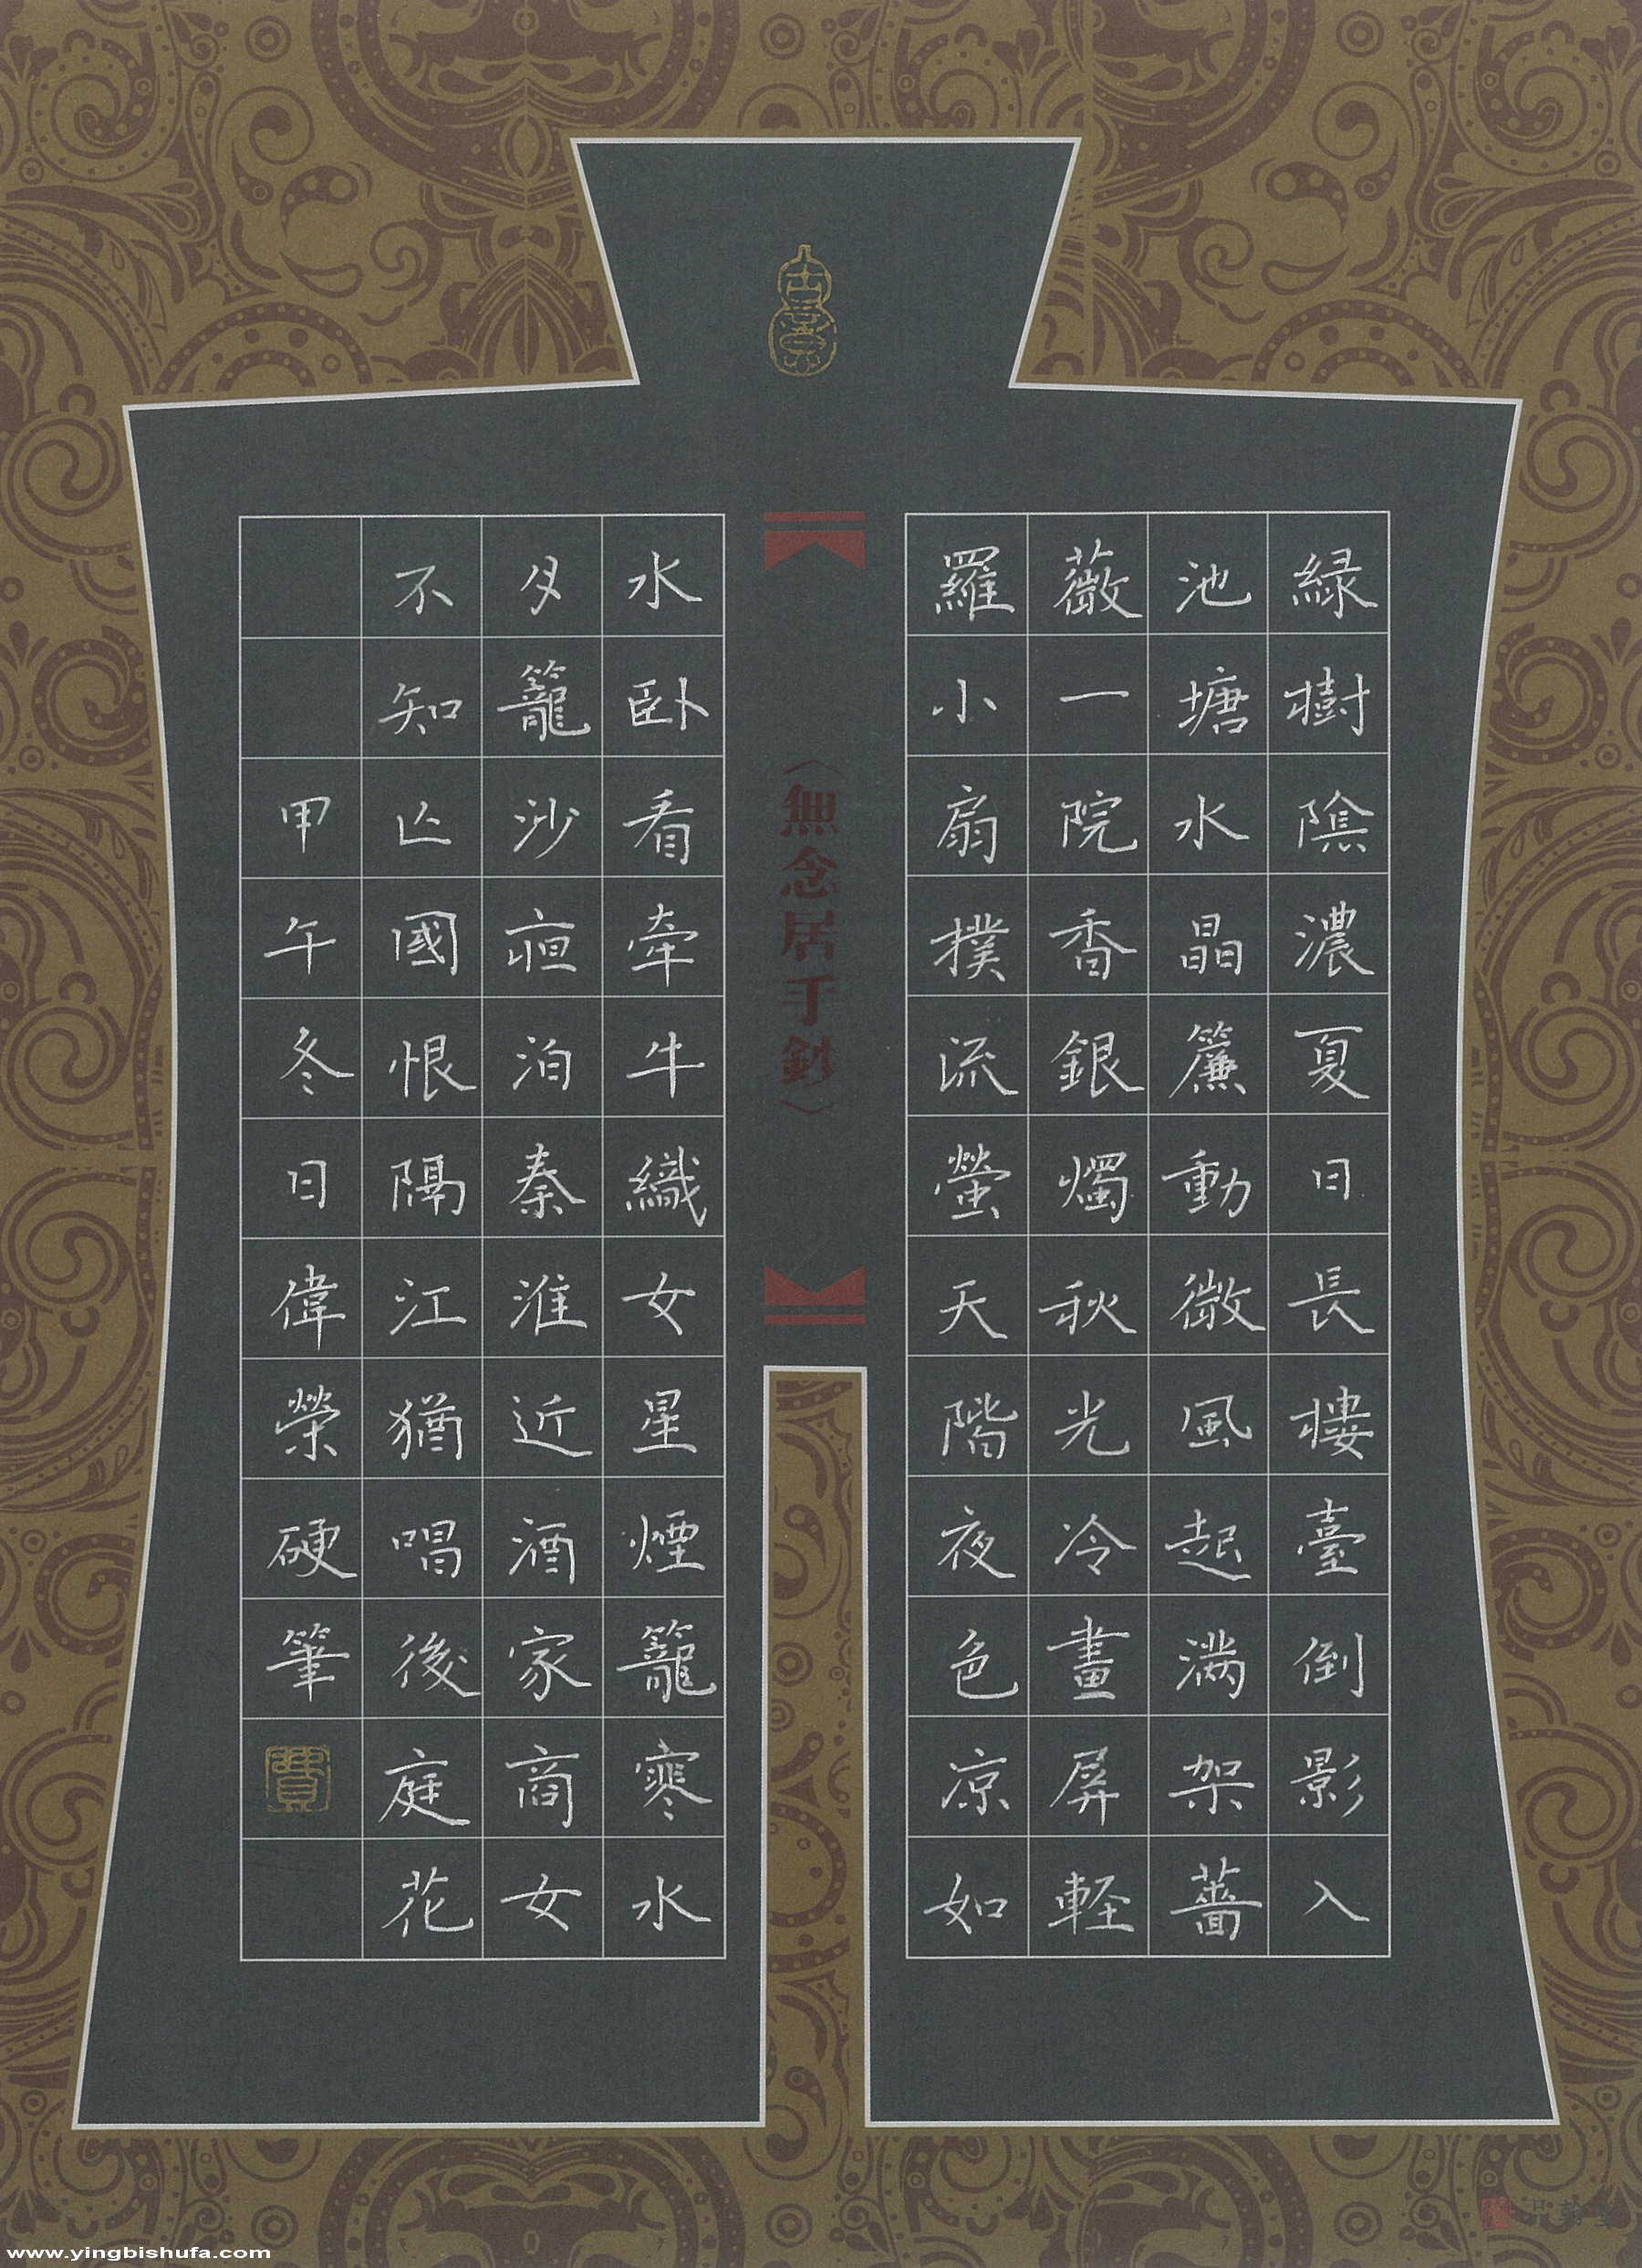 緑樹隂濃夏日長樓臺倒影入
池塘水晶簾動微風起滿架薔
薇一院香銀燭秋光冷畫屏軽
羅小扇撲流螢天階夜色凉如
水卧看牽牛織女星煙籠寒水
月籠沙夜泊秦淮近酒家商女
不知亾國恨隔江猶唱後庭花
甲午冬日偉榮硬筆
〈無念居手鈔〉
www.yingbishufa.com